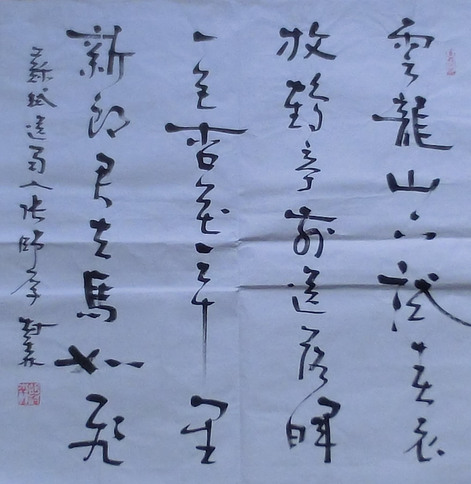 雲龍山下試春衣
放鶴亭前送落暉
一色杏花三十里
新郎君去馬如飛
蘇軾送蜀人張師厚